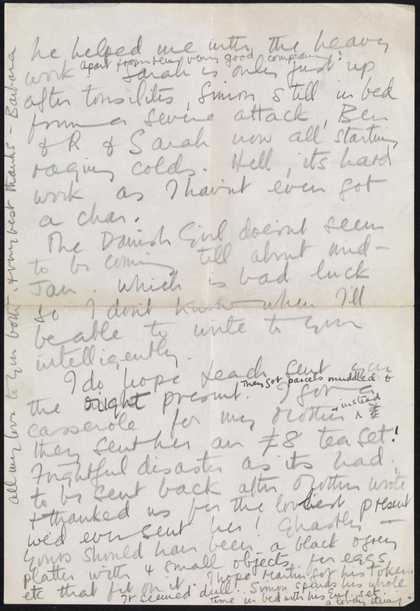 he helped me with the heavy
apart from being very good company!
work Sarah is only just up
after tonsilitis, Simon still in bed
from a severe attack, Ben
& R & Sarah now all starting
raging colds. Hell, its hard
work as I havn't even got
a char.
The Danish Girl doesnt seem
to be coming till about mid-
Jan. which is bad luck
so I don't know when I'll
be able to write to you
intelligently.
I do hope Leach sent you
They got parcels muddled &
the right present. I got a
casserole for my Mother &
instead
they sent her an £8 tea set!
Frightful disaster as its had
to be sent back after Mother wrote
& thanked us for the loveliest present
we'd ever sent her! Ghastly —
Yours should have been a black & green
platter with 4 small objects, for eggs
etc that fit on it. I hope Martin got his tokens
It seemed dull. Simon spends his whole
time in bed with his Enid set.
a lovely
all my love to you both & to my best thanks – Barbara